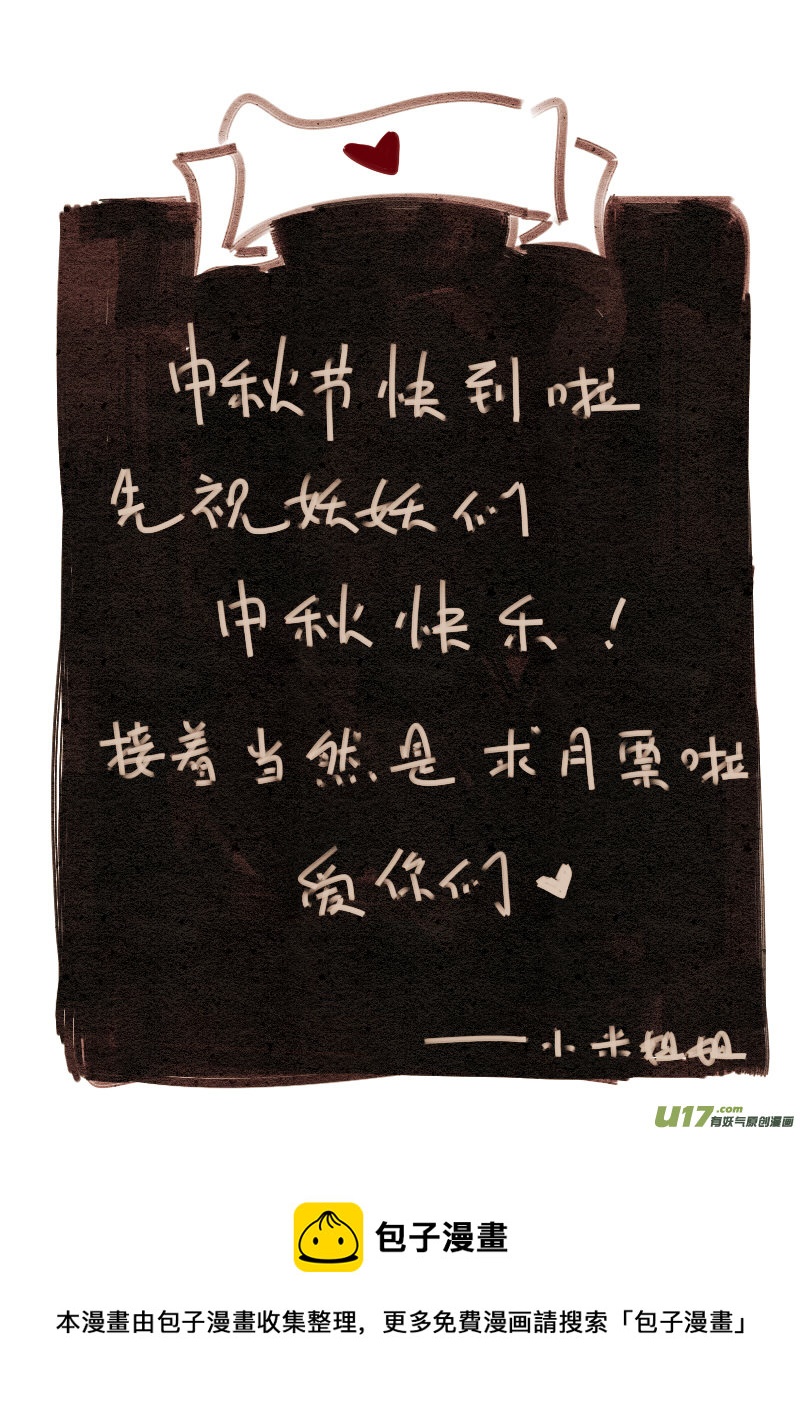 中秋节快到啦
先祝妖妖们
中秋快乐！
接着当然是求月票啦
爱你们
——小米
U17.com
有妖气原创漫画
包子漫畫
本漫畫由包子漫畫收集整理，更多免費漫画請搜索「包子漫畫」